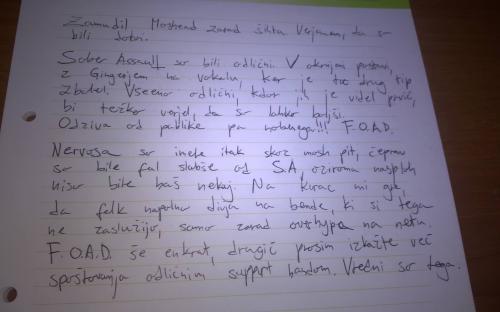 Zamudil Moshead zarad šihta. Verjamem, da so
bili dobri.
Sober Assault so bili odlični. V okrnjeni postavi,
z Gingerjem na vokalu, ker je ta drug tip
zbolel. Vseeno odlični, kdor jih je videl prvič,
bi težko verjel, da so lahko boljši.
Odziva od publike pa nobenega!!! F.O.A.D.
Nervosa so imele itak skoz mosh pit, čeprav
so bile fal slabše od S.A. oziroma nasploh
niso bile baš nekaj. Na kurac mi gre,
da folk napolno divja na bende, ki si tega
ne zaslužijo, samo zarad overhypa na netu.
F.O.A.D. še enkrat, drugič prosim izkažte več
spoštovanja odličnim support bandom. Vredni so tega.